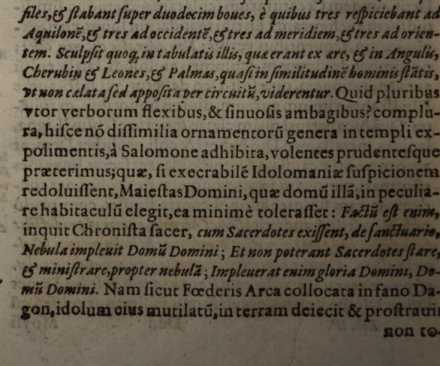 siles, & stabant super duodecim boues, è quibus tres respiciebant ad
Aquilonē, & tres ad occidentē, & tres ad meridiem, & tres ad orien-
tem. Sculpsit quoq, in tabulatis illis, quæ erant ex ære, & in Angulis,
Cherubin & Leones, & Palmas, quasi in similitudinē hominis stātis,
vt non cælata sed apposita per circuitū, viderentur. Quid pluribus
vtor verborum flexibus, & sinuosis ambagibus? complu-
ra, hisce nō dissimilia ornamentorū genera in templi ex-
polimentis, à Salomone adhibita, volentes prudentesque
præterimus; quæ, si execrabilē Idolomaniæ suspicionem
redoluissent, Maiestas Domini, quæ domū illā, in peculia-
re habitaculū elegit, ea minimè tolerasset: Factū est enim,
inquit Chronista sacer, cum Sacerdotes exissent, de sanctuario,
Nebula impleuit Domū Domini; Et non poterant Sacerdotes stare,
& ministrare, propter nebulā; Impleuerat enim gloria Domini, Do-
mū Domini. Nam sicut Fœderis Arca collocata in fano Da-
gon, idolum eius mutilatū, in terram deiecit & prostrauit
non to-